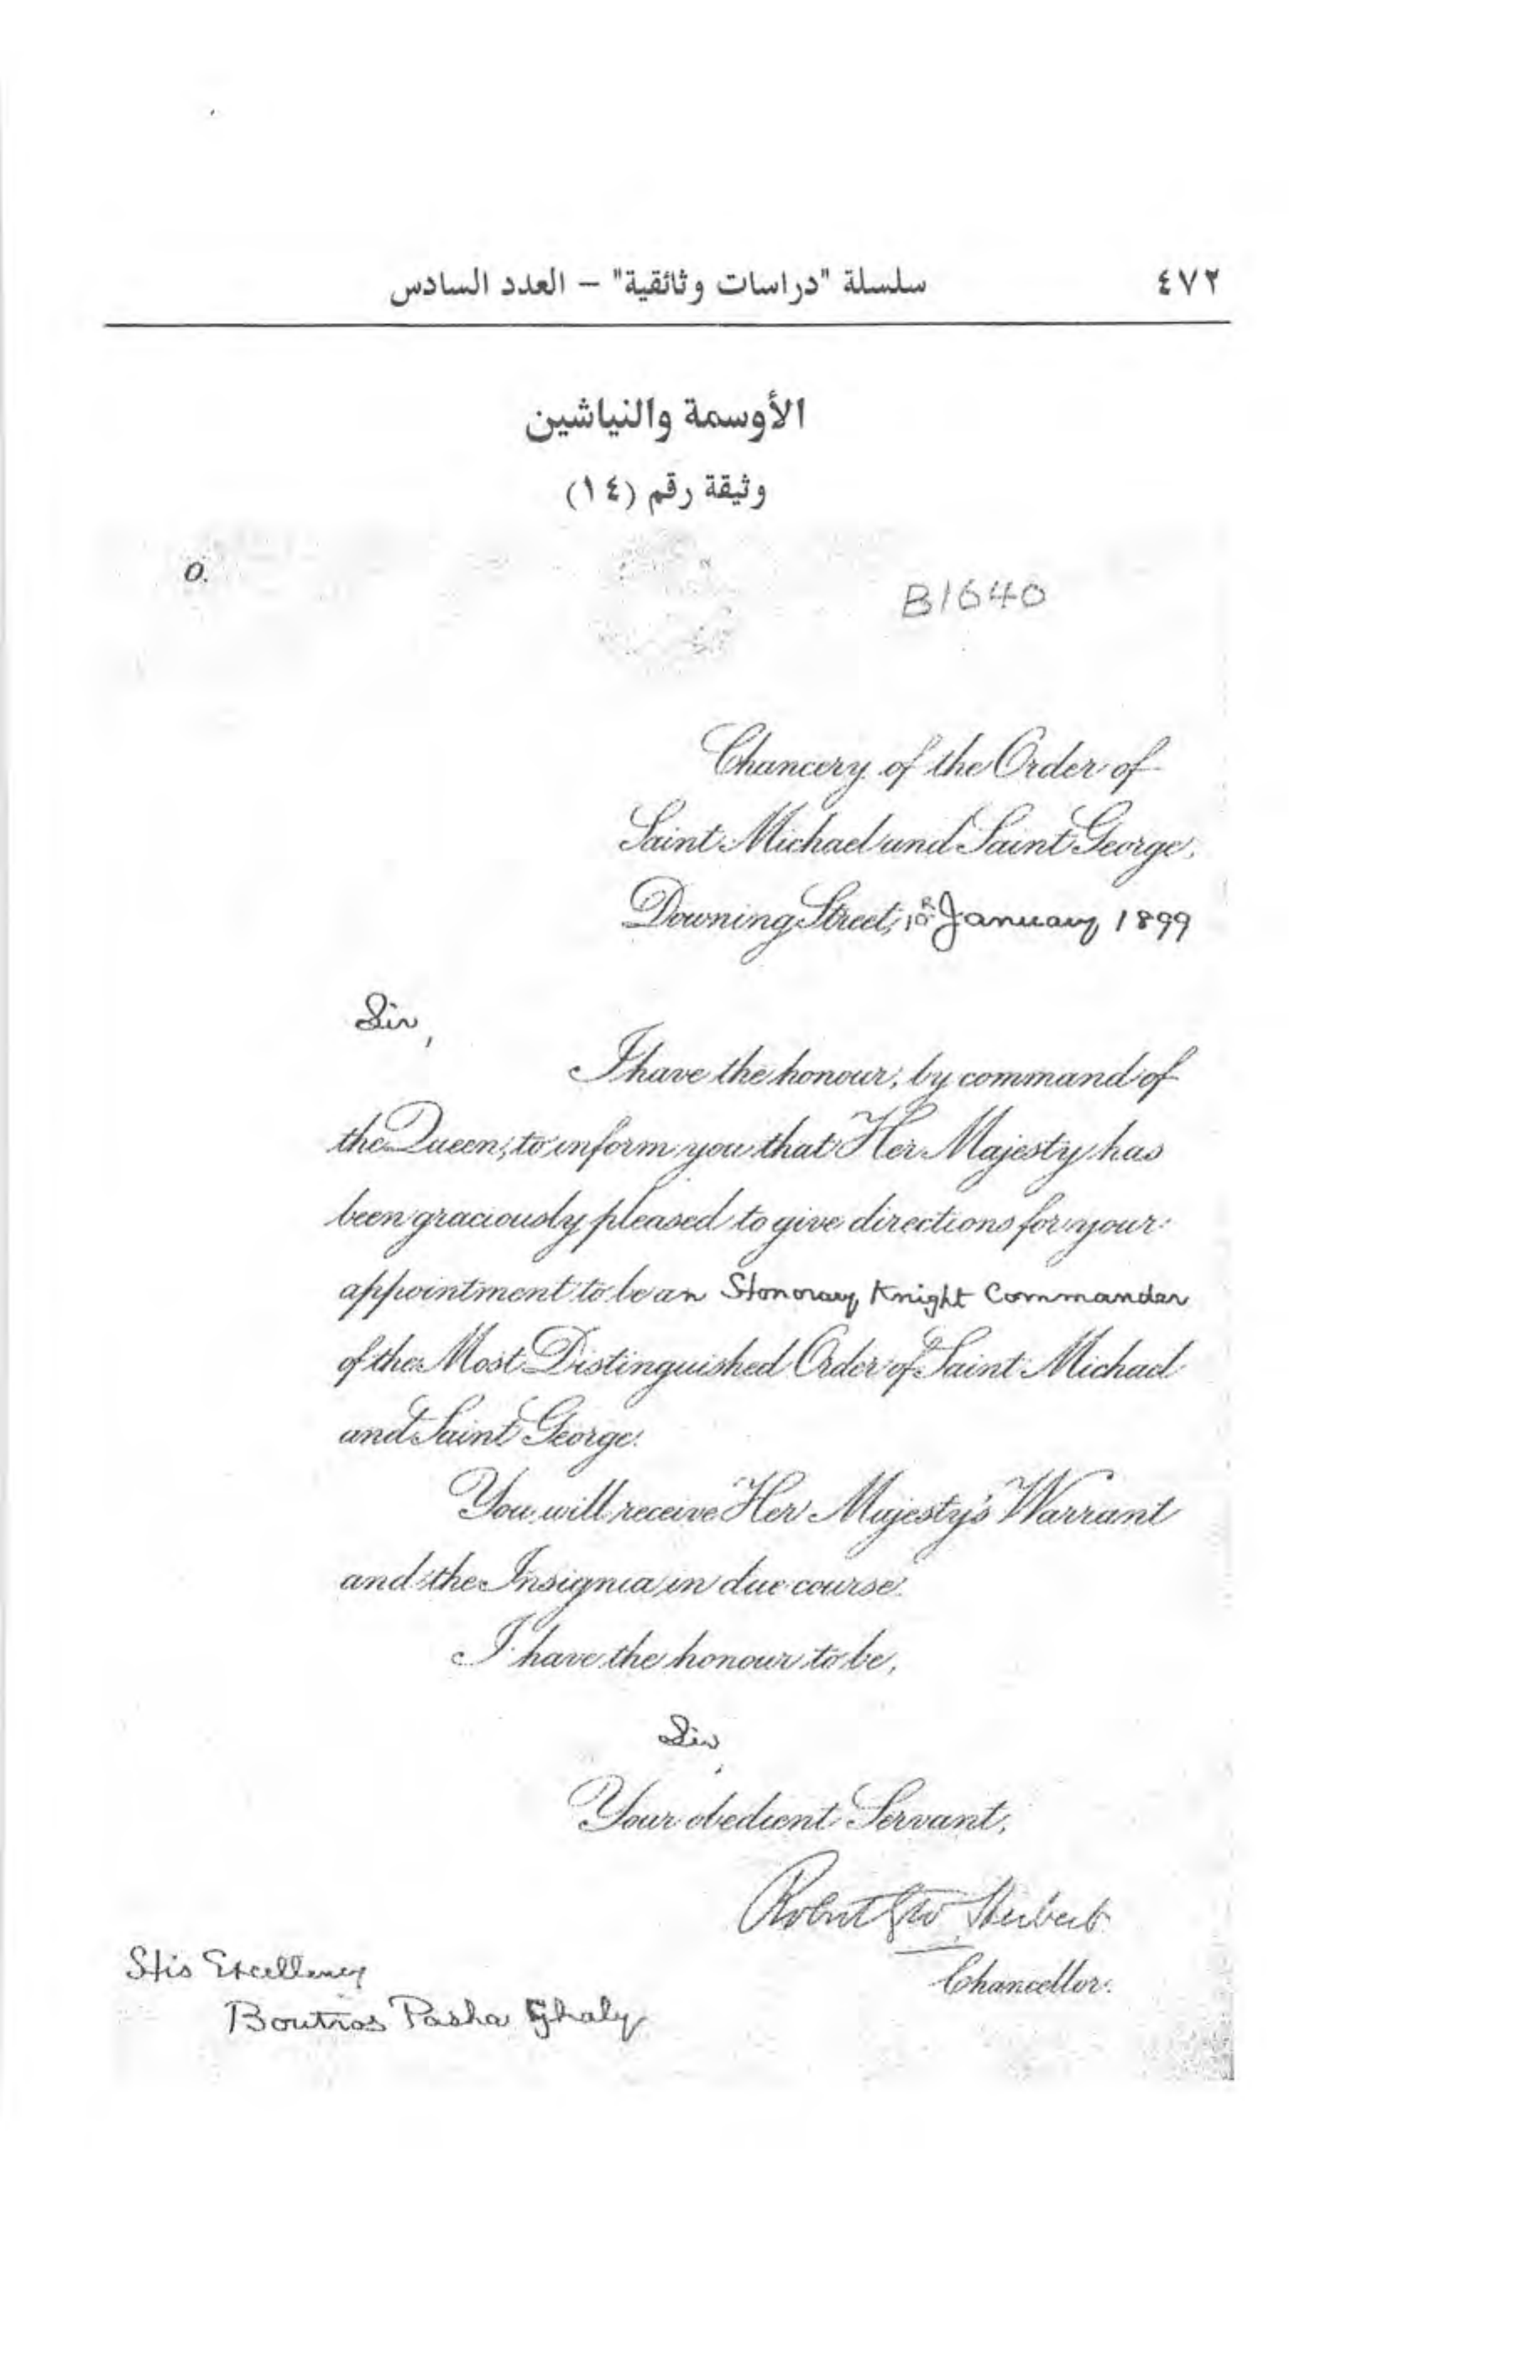 ٤٧٢
سلسلة "دراسات وثائقية" – العدد السادس
الأوسمة والنياشين
وثيقة رقم (١٤)
O.
B1640
Chancery of the Order of
Saint Michael and Saint George,
Downing Street, January 1899
Sir,
I have the honour, by command of
the Queen, to inform you that Her Majesty has
been graciously pleased to give directions for your
appointment to be an Honorary Knight Commander
of the Most Distinguished Order of Saint Michael
and Saint George.
You will receive Her Majesty's Warrant
and the Insignia in due course.
I have the honour to be,
Sir,
Your obedient Servant,
Robert G W Herbert
Chancellor.
His Excellency
Boutros Pasha Ghaly